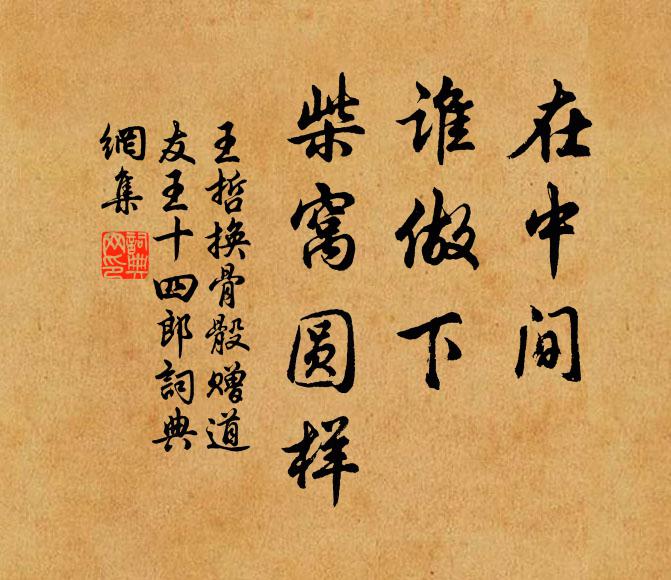 在中间
谁做下
柴窝圆样
王哲换骨骰赠道
友王十四郎詞典
網集
詞典
网印